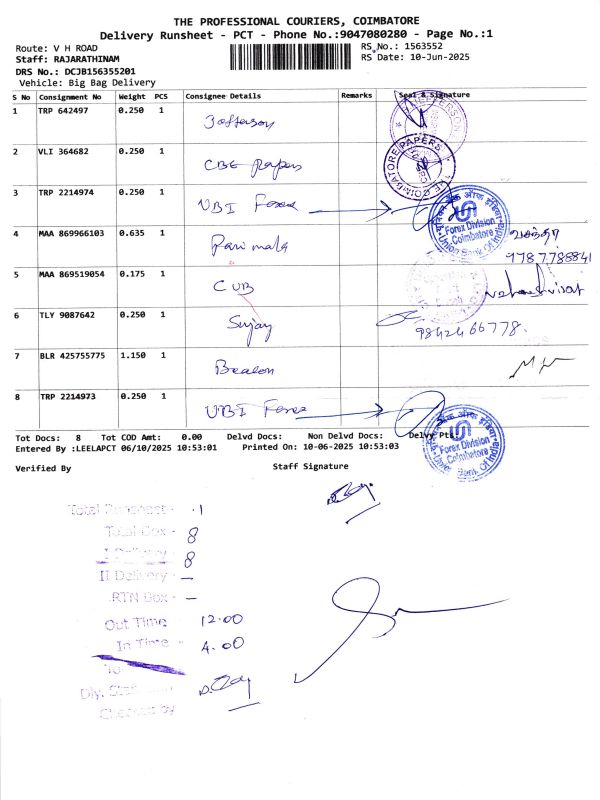 THE PROFESSIONAL COURIERS, COIMBATORE
Delivery Runsheet - PCT - Phone No.:9047080280 - Page No.:1
Route: V H ROAD
RS No.: 1563552
Staff: RAJARATHINAM
RS Date: 10-Jun-2025
DRS No.: DCJB156355201
Vehicle: Big Bag Delivery
S No Consignment No Weight PCS Consignee Details Remarks Seal & Signature
1 TRP 642497 0.250 1 Jofferson
2 VLI 364682 0.250 1 CBE Papers
THE COIMBATORE PAPERS
3 TRP 2214974 0.250 1 UBI Forex
Forex Division
Coimbatore
Union Bank Of India
4 MAA 869966103 0.635 1 Parimala
வசந்தா
9787788841
5 MAA 869519054 0.175 1 CUB
6 TLY 9087642 0.250 1 Sujay
9842466778.
7 BLR 425755775 1.150 1 Beacon
8 TRP 2214973 0.250 1 UBI Forex
Forex Division
Coimbatore
Union Bank Of India
Tot Docs: 8 Tot COD Amt: 0.00 Delvd Docs: Non Delvd Docs: Delvy Pts
Entered By :LEELAPCT 06/10/2025 10:53:01 Printed On: 10-06-2025 10:53:03
Verified By
Staff Signature
Total Runsheet - 1
Total Dox - 8
I Delivery - 8
II Delivery - —
RTN Dox - —
Out Time 12.00
In Time 4.00
Checked by